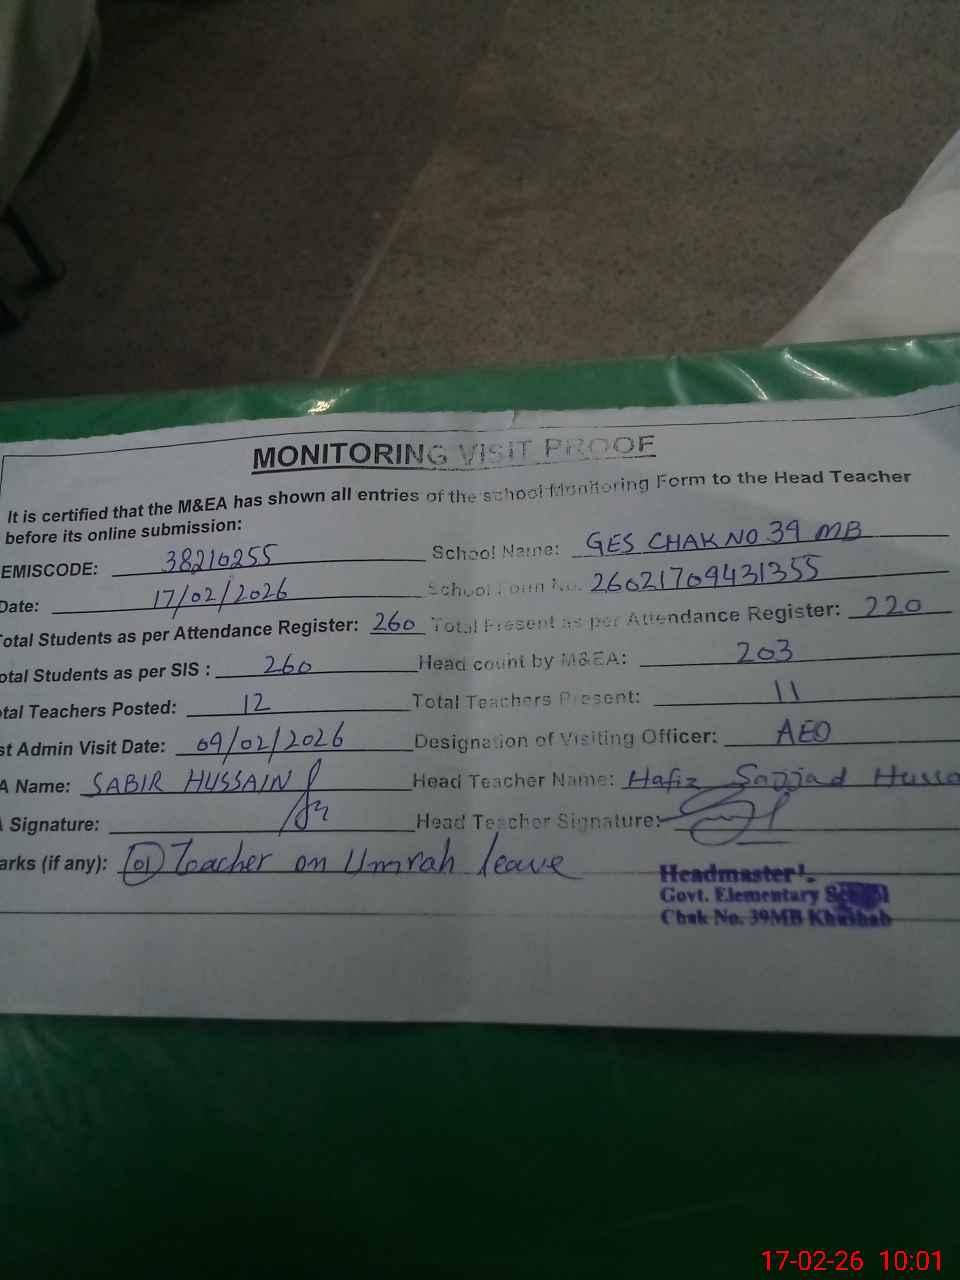 MONITORING VISIT PROOF
It is certified that the M&EA has shown all entries of the school Monitoring Form to the Head Teacher
before its online submission:
EMISCODE: 38210255 School Name: GES CHAK NO 39 MB
Date: 17/02/2026 School Form No. 26021709431355
Total Students as per Attendance Register: 260 Total Present as per Attendance Register: 220
otal Students as per SIS : 260 Head count by M&EA: 203
tal Teachers Posted: 12 Total Teachers Present: 11
st Admin Visit Date: 09/02/2026 Designation of Visiting Officer: AEO
A Name: SABIR HUSSAIN Head Teacher Name: Hafiz Sajjad Hussa
Signature: Head Teacher Signature:
arks (if any): 01 Teacher on Umrah leave
Headmaster
Govt. Elementary School
Chak No. 39MB Khushab
17-02-26 10:01